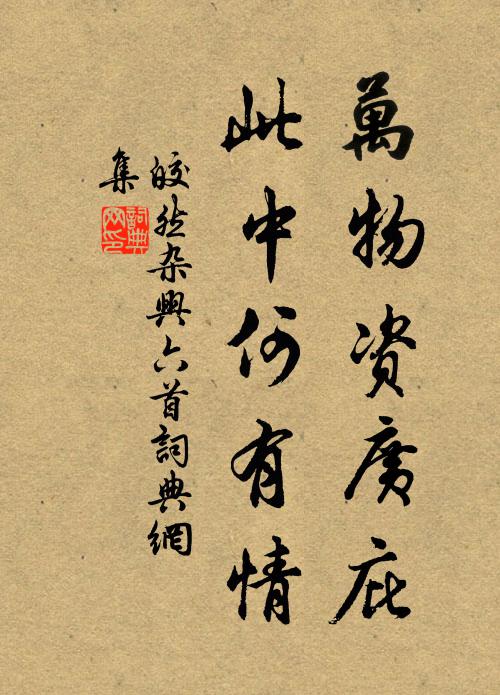 萬物资廣庇
此中何有情
皎然杂興六首詞典網
集
詞典
网印